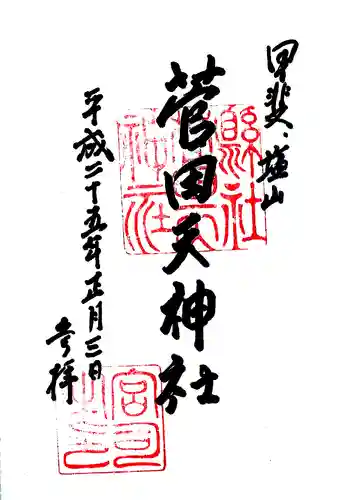 甲斐、塩山
菅田天神社
平成二十五年正月三日
拝